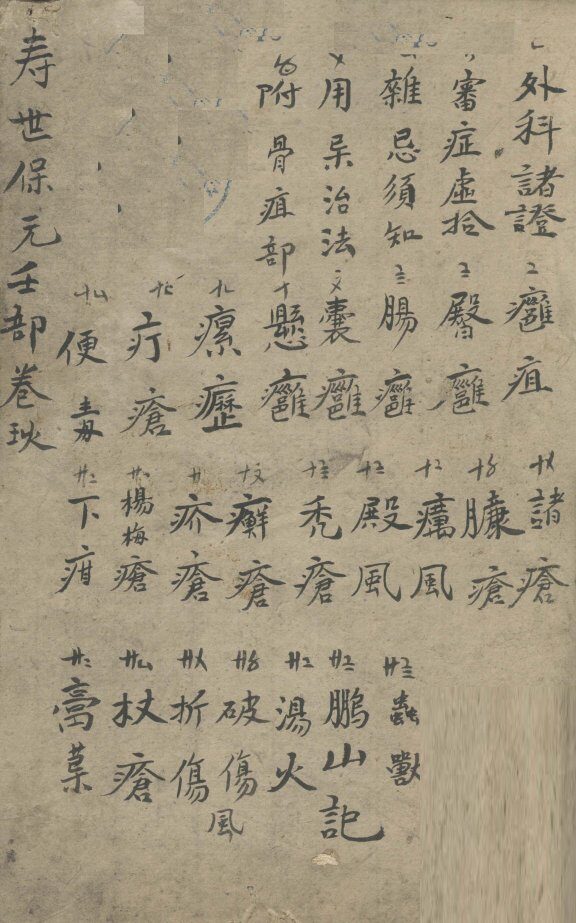 外科諸證
審症虛拾
雜忌須知
用呆治法
附骨疽部
癰疽
臀癰
腸癰
囊癰
懸癰
瘰癧
疔瘡
便毒
諸瘡
臁瘡
癘風
殿風
禿瘡
癬瘡
疥瘡
楊梅瘡
下疳
蟲獸
鵬山記
湯火
破傷風
折傷
杖瘡
膏菓
寿世保元壬部卷玖